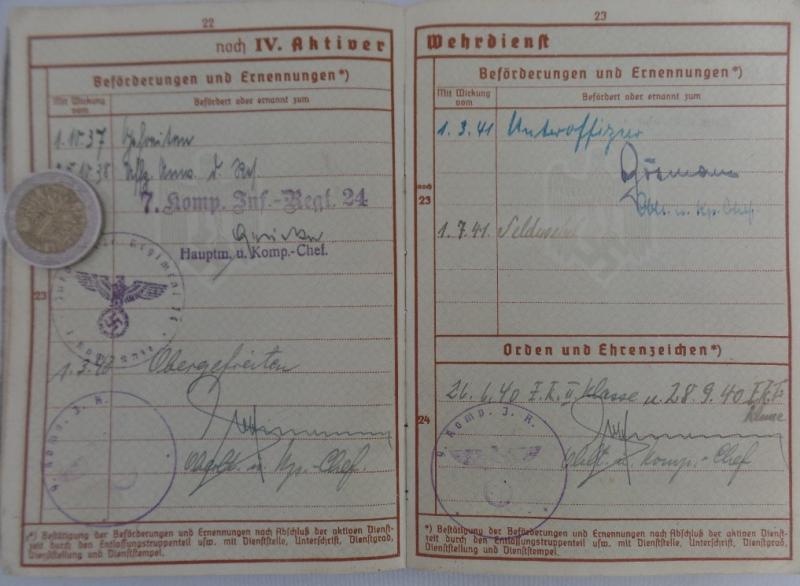 22
noch IV. Aktiver
Beförderungen und Ernennungen*)
Mit Wirkung
vom
Befördert oder ernannt zum
Gefreiten
7. Komp. Inf.-Regt. 24
Hauptm. u. Komp.-Chef.
23
Obergefreiten
u. Kp.-Chef.
*) Bestätigung der Beförderungen und Ernennungen nach Abschluß der aktiven Dienst-
zeit durch den Entlassungstruppenteil usw. mit Dienststelle, Unterschrift, Dienstgrad,
Dienststellung und Dienststempel.
23
Wehrdienst
Beförderungen und Ernennungen*)
Mit Wirkung
vom
Befördert oder ernannt zum
1.3.41 Unteroffizier
noch
23
u. Kp. Chef.
1.7.41. Feldwebel
Orden und Ehrenzeichen*)
26.6.40 E.K. II Klasse u. 28.9.40 E.K. I
Klasse
24
u. Komp.-Chef
*) Bestätigung der Beförderungen und Ernennungen nach Abschluß der aktiven Dienst-
zeit durch den Entlassungstruppenteil usw. mit Dienststelle, Unterschrift, Dienstgrad,
Dienststellung und Dienststempel.